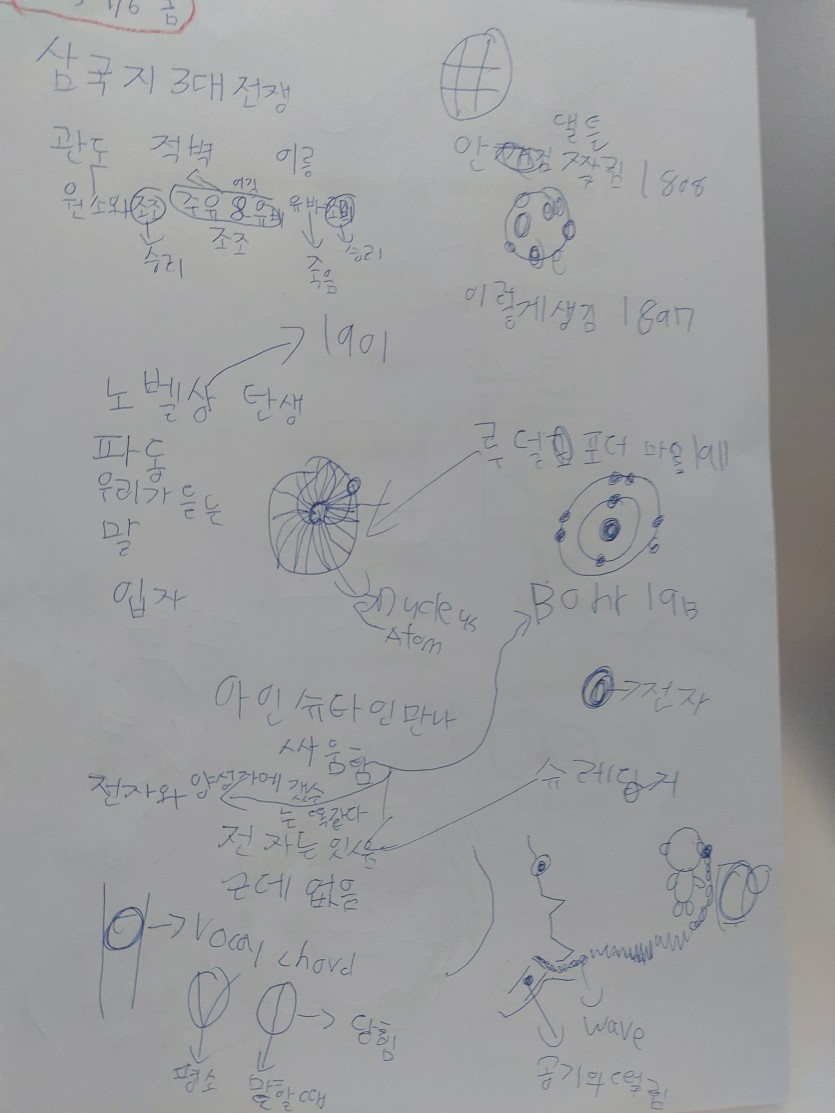 1/6 금
삼국지 3대 전쟁
관도 적벽 이릉
원소와 조조
승리
이김
주유&유비
조조
유비
죽음
승리
댈튼
안 쪼개짐 1808
e
이렇게 생김 1897
1901
노벨상 탄생
파동
우리가 듣는
말
입자
루덜포더 마을 1911
Nucleus
Atom
Bohr 1913
전자
아인슈타인 만나
싸움함
전자와 양성자에 갯수
는 똑같다
슈레딩거
전자는 있음
근데 없음
Vocal chord
평소
말할때
닫힘
wave
공기의 떨림